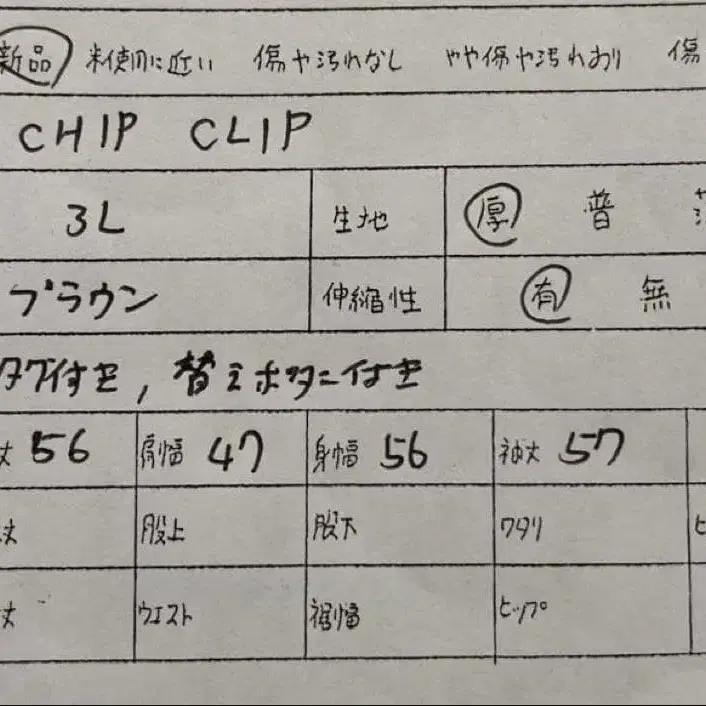 新品 未使用に近い 傷や汚れなし やや傷や汚れあり 傷
CHIP CLIP
3L 生地 厚 普
ブラウン 伸縮性 有 無
タグ付き, 替えボタン付き
丈 56 肩幅 47 身幅 56 袖丈 57
丈 股上 股下 ワタリ ヒ
丈 ウエスト 裾幅 ヒップ